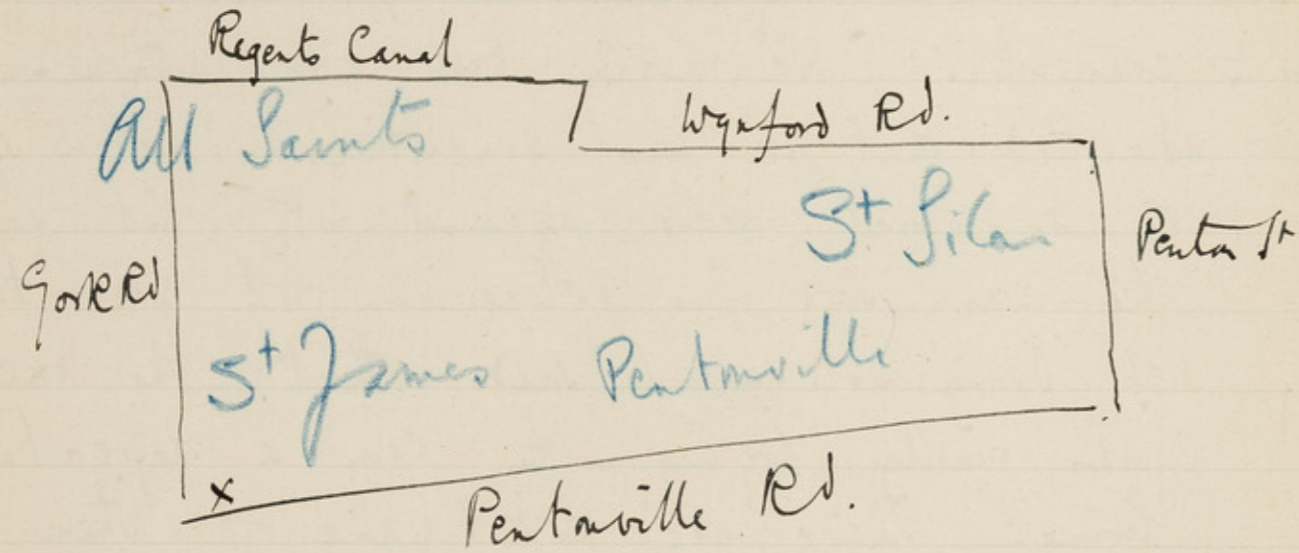 Regents Canal
All Saints
Wynford Rd.
St Silas
Penton St
York Rd
St James Pentonville
x
Pentonville Rd.